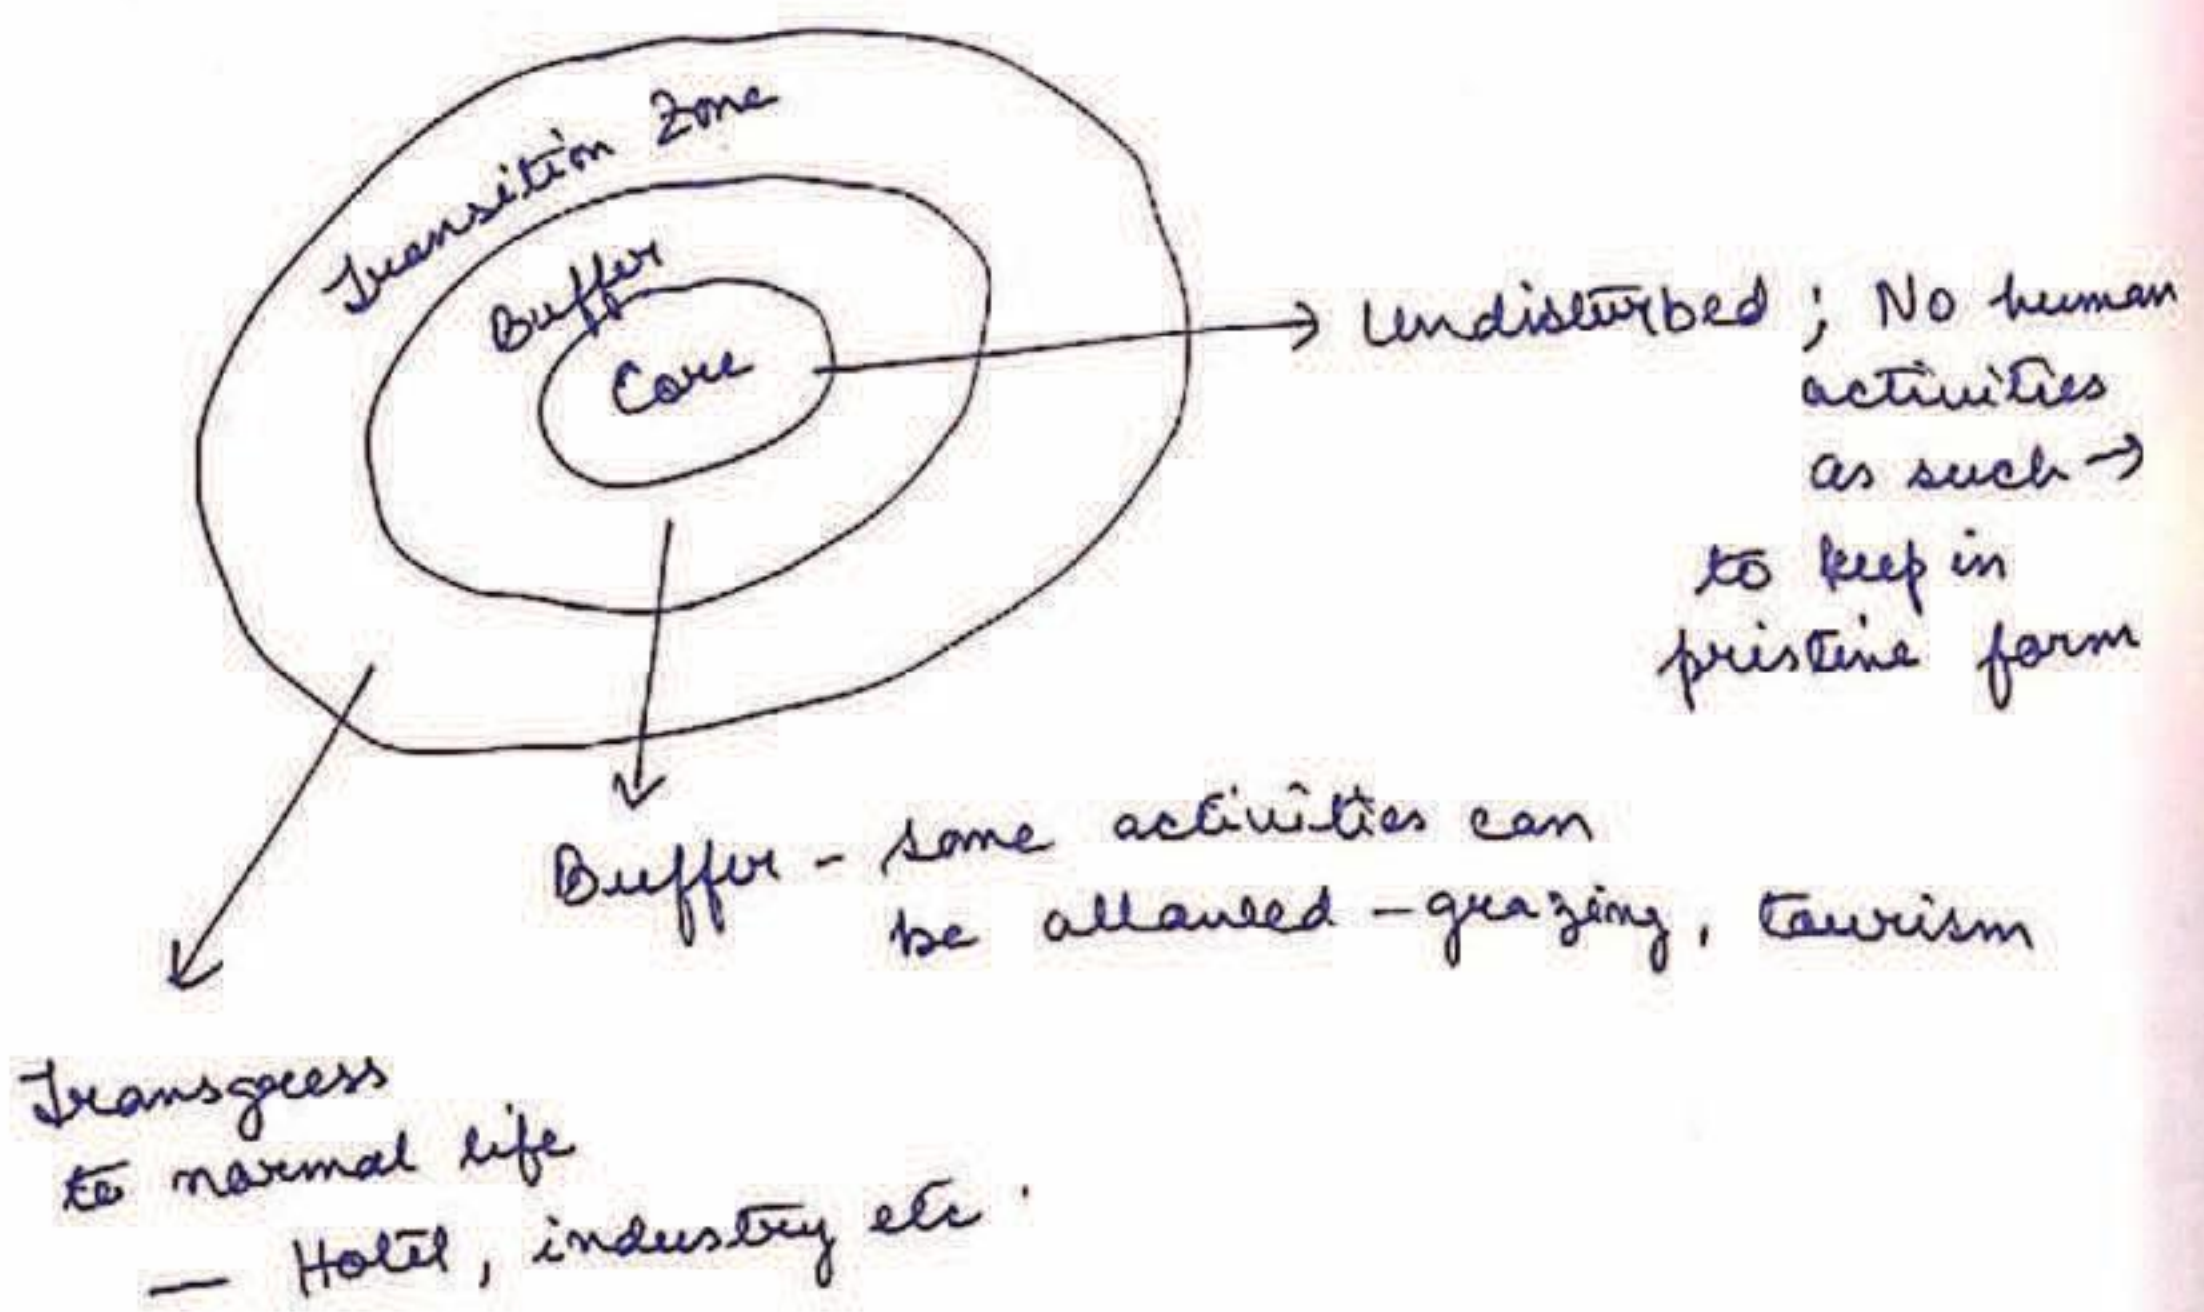 Transition Zone
Buffer
Core
Undisturbed ; No human
activities
as such →
to keep in
pristine form
Buffer - some activities can
be allowed - grazing, tourism
Transgress
to normal life
— Hotel, industry etc.